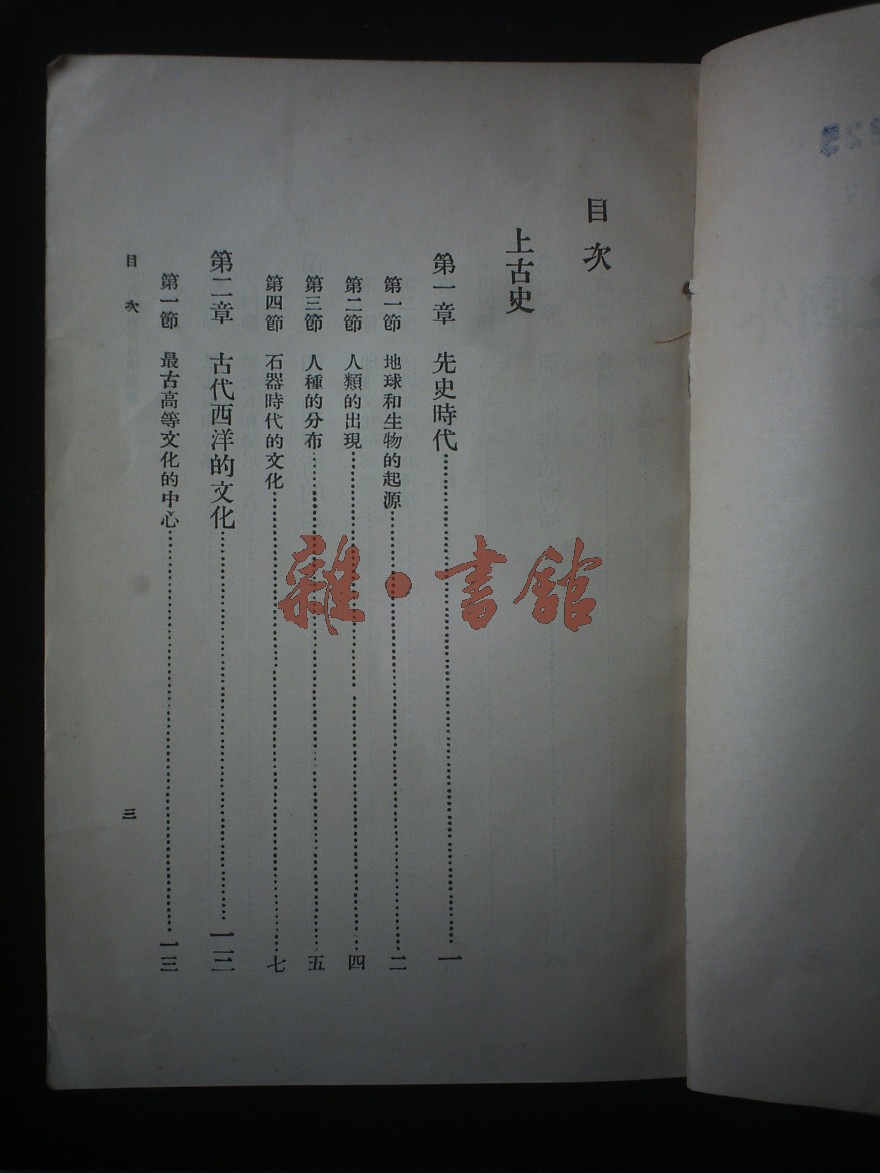 目次
上古史
第一章 先史時代……一
第一節 地球和生物的起源……二
第二節 人類的出現……四
第三節 人種的分布……五
第四節 石器時代的文化……七
第二章 古代西洋的文化……一二
第一節 最古高等文化的中心……一三
目次
三
雜·書館